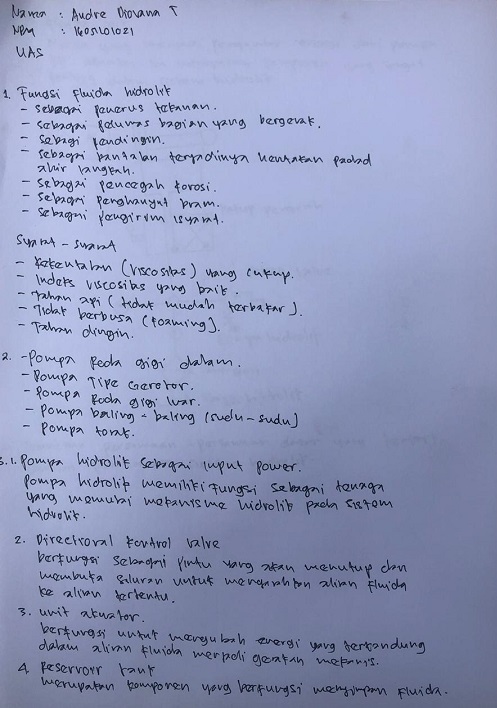 Nama : Audre Diovana T
NPM : 1605101021
UAS
1. Fungsi Fluida hidrolik
- sebagai penerus tekanan.
- sebagai pelumas bagian yang bergerak.
- sebagi pendingin.
- sebagai bantalan terjadinya hentakan pada
akhir langkah.
- sebagai pencegah korosi.
- sebagai penghanyut bram.
- sebagai pengirim isyarat.
Syarat - syarat
- Kekentalan (viscositas) yang cukup.
- Indeks viscositas yang baik.
- Tahan api (tidak mudah terbakar).
- Tidak berbusa (foaming).
- Tahan dingin.
2. - Pompa Roda gigi dalam.
- Pompa Tipe Gerotor.
- Pompa Roda gigi luar.
- Pompa baling - baling (sudu-sudu)
- Pompa torak.
3. 1. Pompa hidrolik sebagai input power.
Pompa hidrolik memiliki fungsi sebagai tenaga
yang memulai mekanisme hidrolik pada sistem
hidrolik.
2. Directional kontrol valve
berfungsi sebagai pintu yang akan menutup dan
membuka saluran untuk mengarahkan aliran fluida
ke aliran tertentu.
3. unit aktuator.
berfungsi untuk mengubah energi yang terkandung
dalam aliran fluida menjadi gerakan mekanis.
4. Reservoir tank
merupakan komponen yang berfungsi menyimpan fluida.